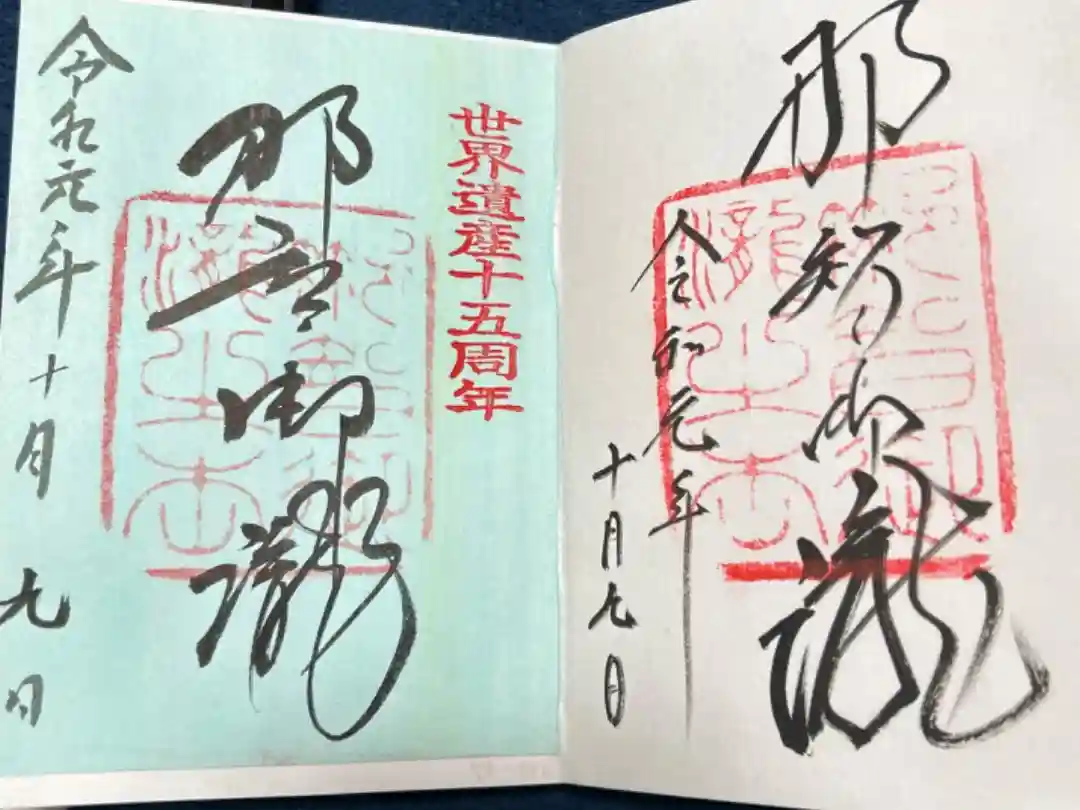 那智御瀧
令和元年
十月 日
世界遺産十五周年
那智御瀧
令和元年十月九日